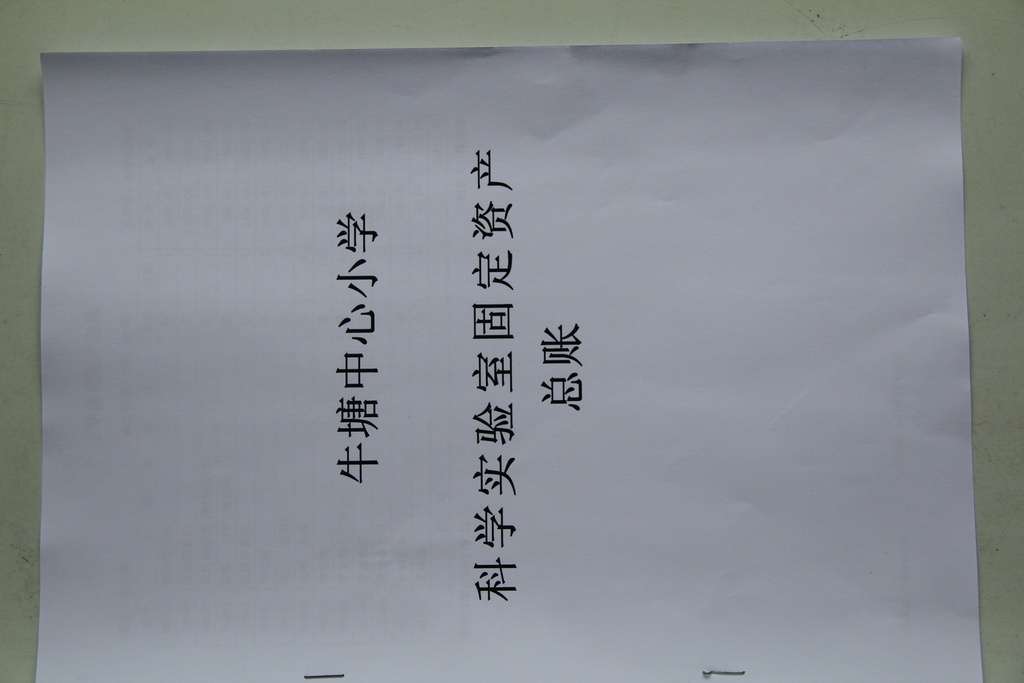 牛塘中心小学
科学实验室固定资产
总账